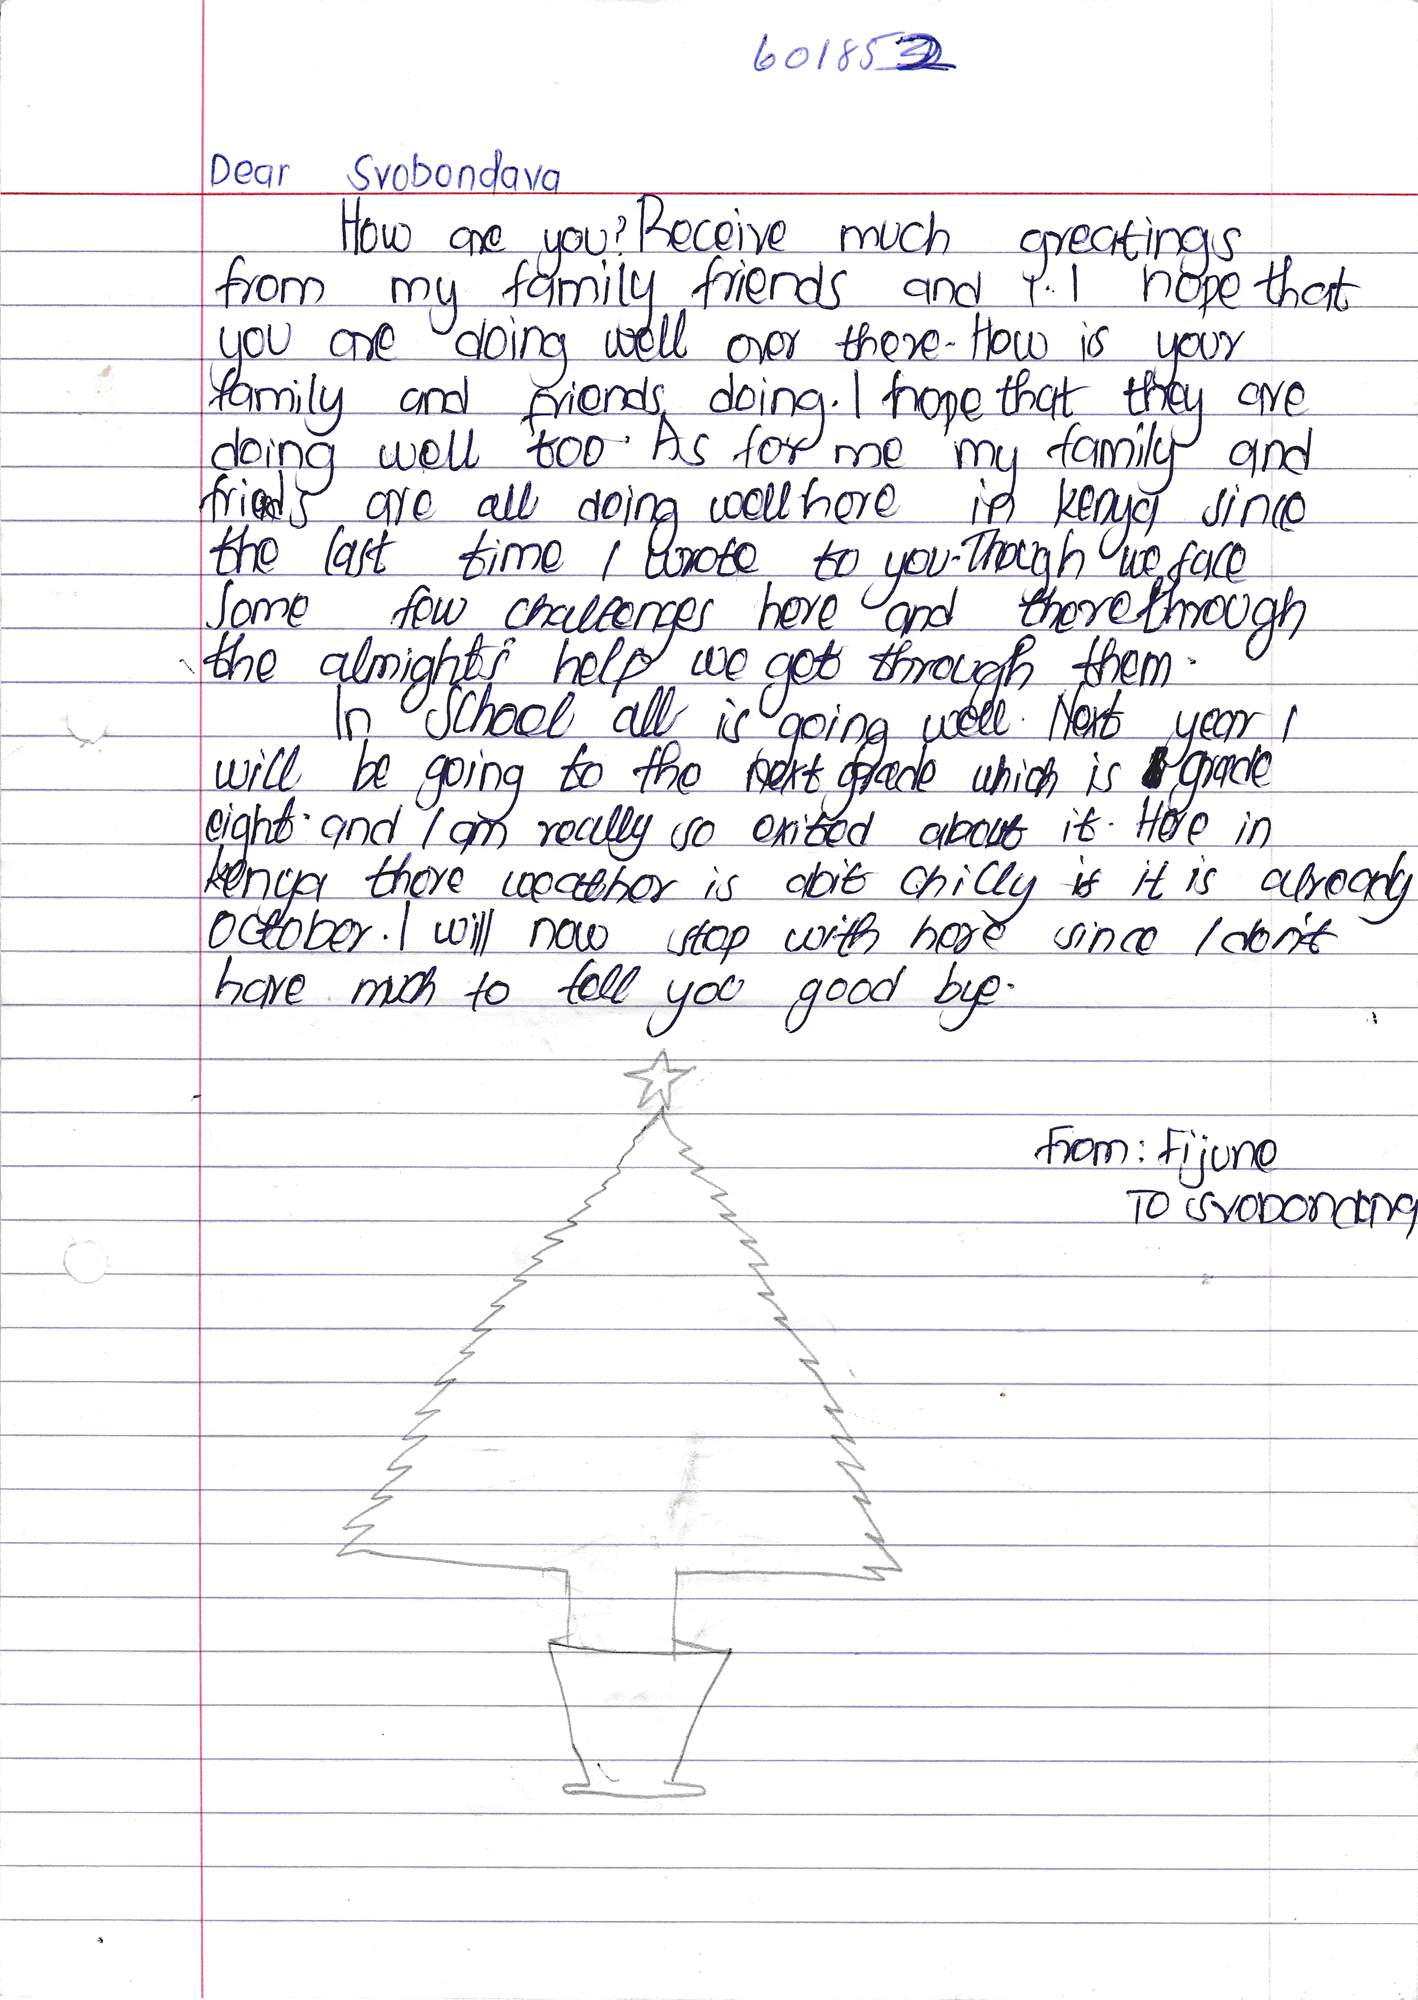 601852
Dear Svobondava
How are you? Receive much greatings
from my family friends and I. I hope that
you are doing well over there. How is your
family and friends doing. I hope that they are
doing well too. As for me my family and
friends are all doing well here in kenya since
the last time I wrote to you. Though we face
Some few challenges here and there through
the almights help we get through them.
In School all is going well. Next year I
will be going to the next grade which is grade
eight. and I am really so exited about it. Here in
kenya there weather is abit chilly it is already
October. I will now stop with here since I don't
have much to tell you good bye.
From: Fijune
To